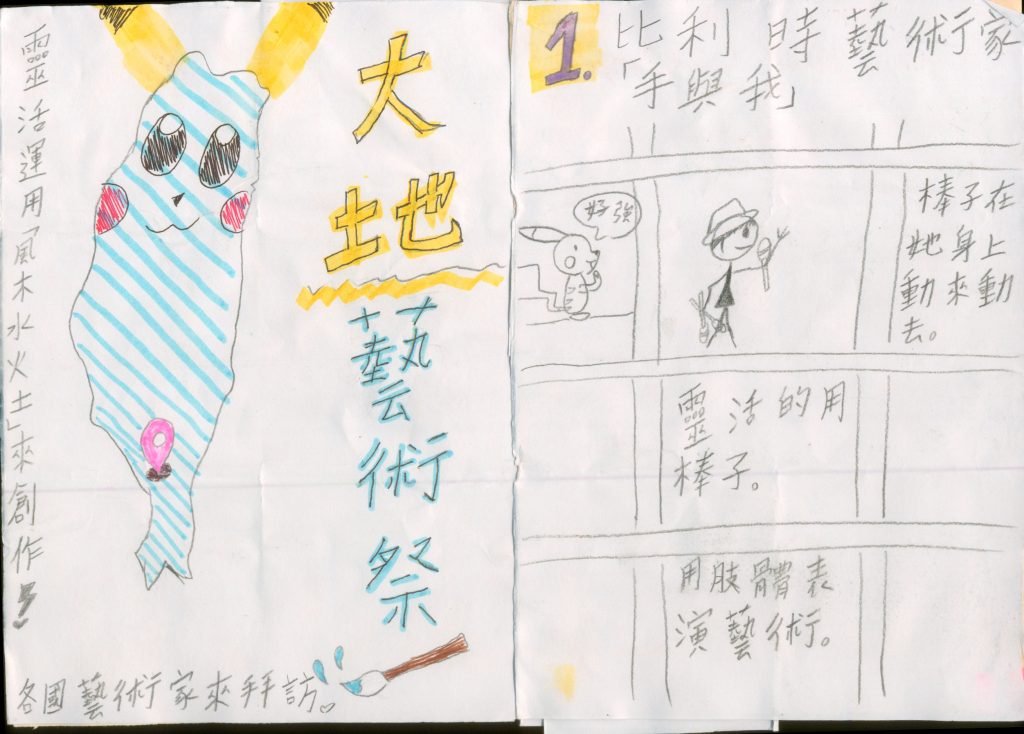 靈活運用「風木水火土」來創作!
大地
藝術祭
各國藝術家來拜訪。
1.
比利時藝術家
「手與我」
好強
棒子在
她身上
動來動
去。
靈活的用
棒子。
用肢體表
演藝術。